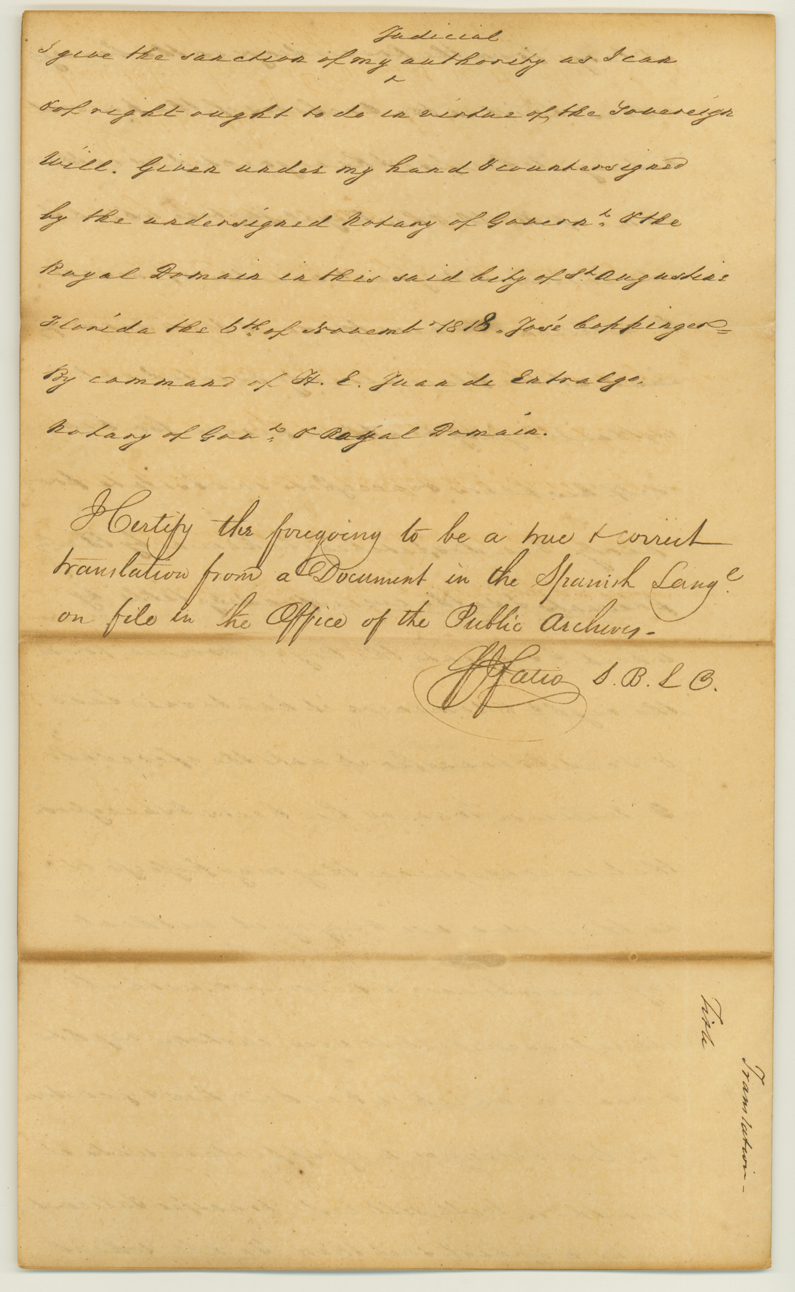 Judicial
I give the sanction of my ^ authority as I can
& of right ought to do in virtue of the Sovereign
Will. Given under my hand & countersigned
by the undersigned Notary of Governt. & the
Royal Domain in this said City of St. Augustine
Florida the 6th of Novembr 1818. José Coppinger=
By command of H. E. Juan de Entralgo.
Notary of Govt. & Royal Domain.
I Certify the foregoing to be a true & correct
translation from a Document in the Spanish Lange.
on file in the Office of the Public Archives.
F J Fatio S. B. L C.
Title
Translation -